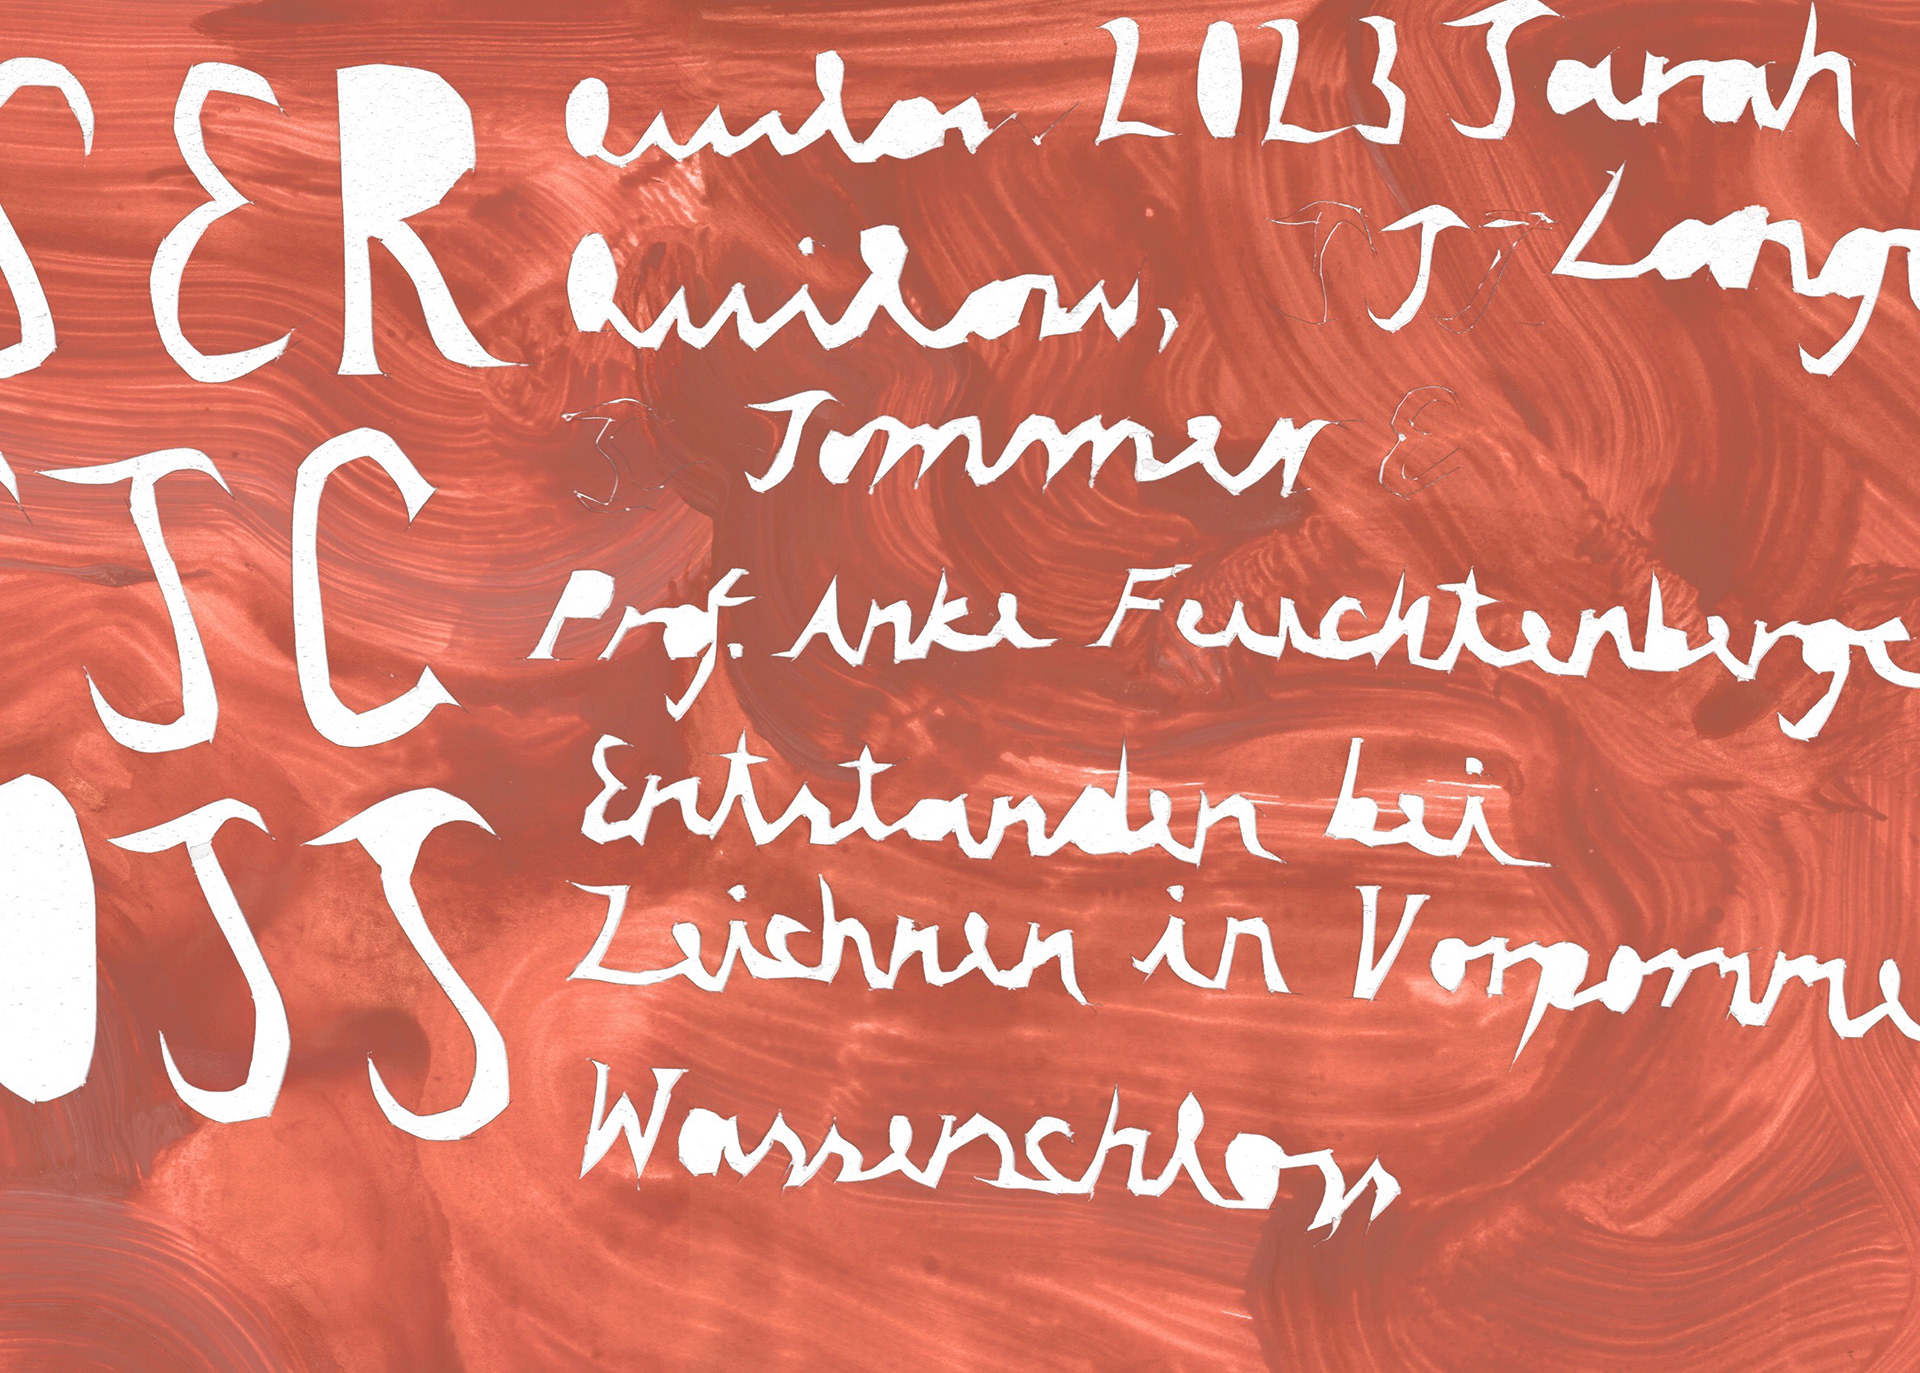 SER
quilow 2023 Sarah
quilow, S Lang
Sommer
SC
Prof. Anke Feuchtenberge
Entstanden bei
OSS
Zeichnen in Vorpomme
Wasserschloss